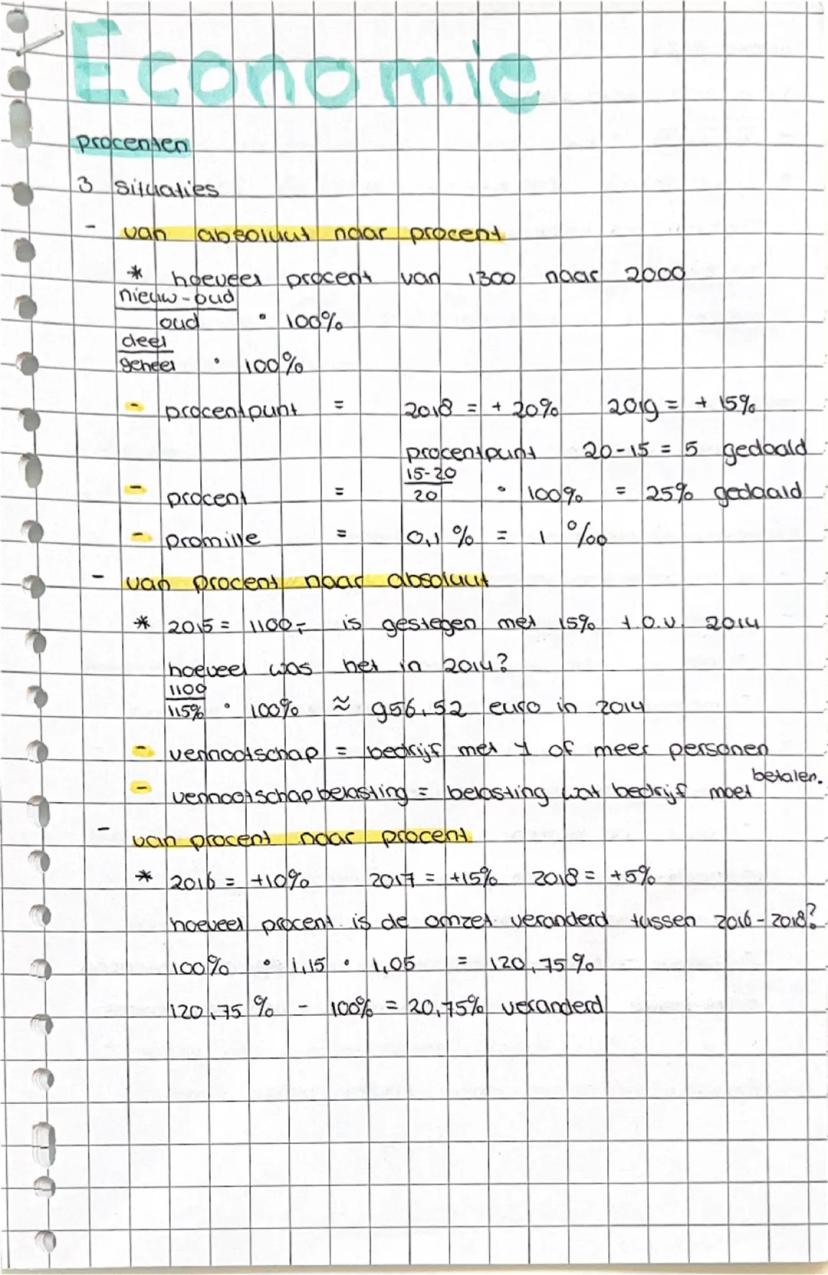 Economie
procenten
3 situaties
- van absoluut naar procent
* hoeveel procent van 1300 naar 2000
nieuw-oud
oud • 100%
deel
geheel • 100%
- procentpunt = 2018 = + 20% 2019 = + 15%
procentpunt 20-15 = 5 gedaald
15-20
- procent = 20 • 100% = 25% gedaald
- promille = 0,1 % = 1 ‰
- van procent naar absoluut
* 2015 = 1100,- is gestegen met 15% t.o.v. 2014
hoeveel was het in 2014?
1100
115% • 100% ≈ 956,52 euro in 2014
- vennootschap = bedrijf met 1 of meer personen
- vennootschapbelasting = belasting wat bedrijf moet betalen.
- van procent naar procent
* 2016 = +10% 2017 = +15% 2018 = +5%
hoeveel procent is de omzet veranderd tussen 2016-2018?
100% • 1,15 • 1,05 = 120,75%
120,75% - 100% = 20,75% veranderd